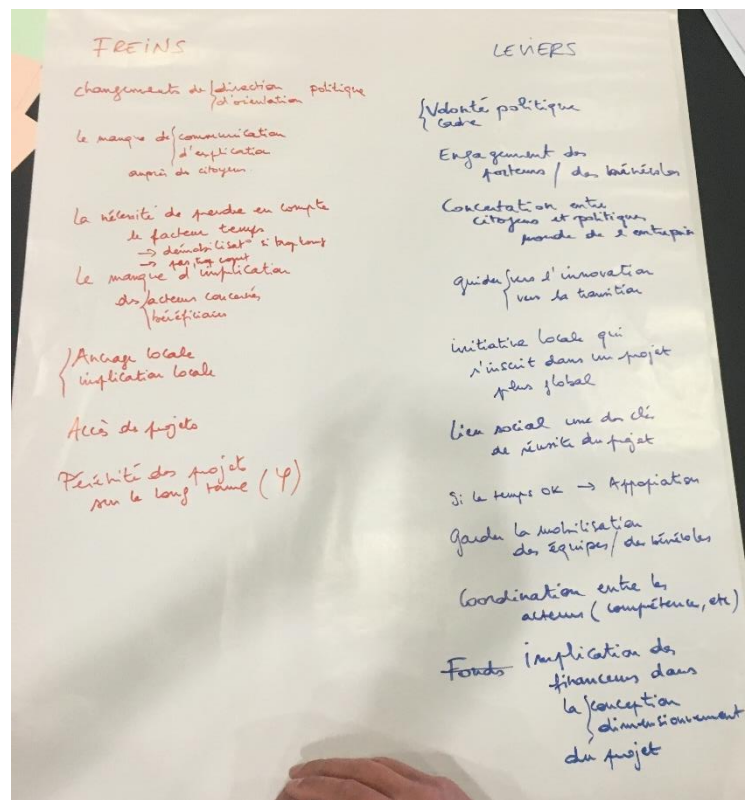 FREINS
changements de { direction politique
d'orientation
le manque de { communication
d'explication
auprès des citoyens.
La nécessité de prendre en compte
le facteur temps
→ démobilisat° si trop long
→ trop court
Le manque d'implication
des { acteurs concernés
bénéficiaires
{ Ancrage locale
implication locale
Accès de projets
Pérénité des projet
sur le long terme (φ)
LEVIERS
{ Volonté politique
cadre
Engagement des
porteurs / des bénévoles
Concertation entre
citoyens et politiques
monde de l'entreprise
guider { vers l'innovation
vers la transition
initiative locale qui
s'inscrit dans un projet
plus global
Lien social une des clé
de réussite du projet
Si le temps OK → Appropiation
Garder la mobilisation
des équipes / des bénévoles
Coordination entre les
acteurs (compétence, etc)
Fonds Implication des
financeurs dans
la { conception
dimensionnement
du projet